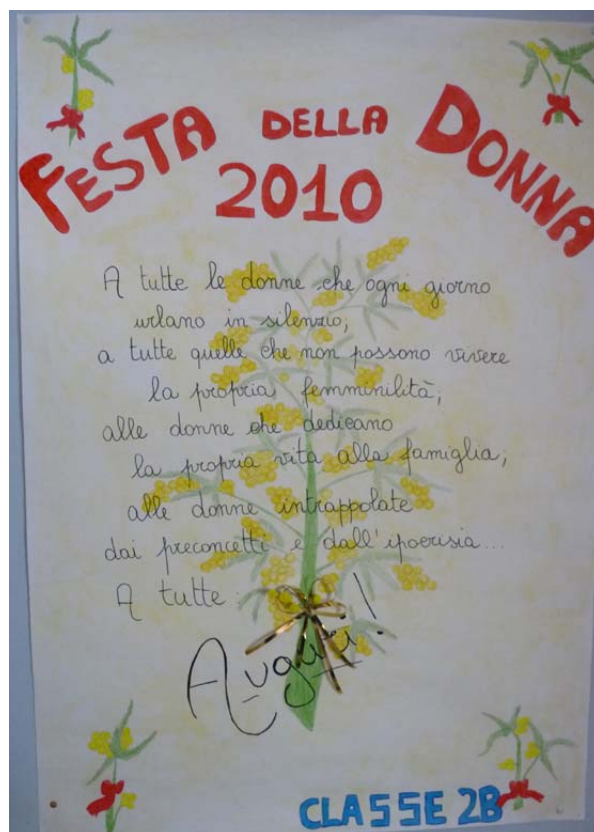 FESTA DELLA DONNA
2010
A tutte le donne che ogni giorno
urlano in silenzio;
a tutte quelle che non possono vivere
la propria femminilità;
alle donne che dedicano
la propria vita alla famiglia;
alle donne intrappolate
dai preconcetti e dall'ipocrisia...
A tutte:
Auguri!
CLASSE 2B